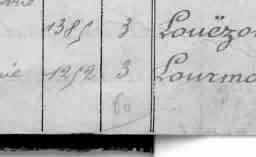 1385 3 Louëzo
1252 3 Lourma
60